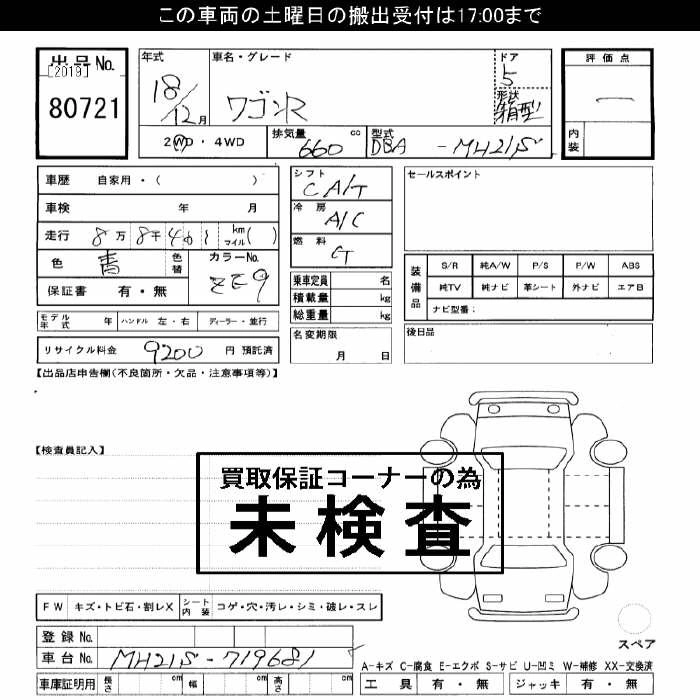 この車両の土曜日の搬出受付は17:00まで
出品No.
[2019]
80721
年式
18/12月
車名・グレード
ワゴンR
ドア
5
形状
箱型
評価点
一
内装
2WD・4WD
排気量
660 cc
型式
DBA - MH21S
車歴 自家用・( )
車検 年 月
走行 8万8千461 km マイル( )
色 青 色替
カラーNo.
ZE9
保証書 有・無
シフト
CA/T
冷房
A/C
燃料
乗車定員 名
積載量 kg
総重量 kg
名変期限
月 日
セールスポイント
装備品
S/R 純A/W P/S P/W ABS
純TV 純ナビ 革シート 外ナビ エアB
ナビ型番:
後日品
モデル年式 年 ハンドル 左・右 ディーラー・並行
リサイクル料金 9200 円 預託済
【出品店申告欄(不良箇所・欠品・注意事項等)】
【検査員記入】
買取保証コーナーの為
未検査
FW キズ・トビ石・割レX シート内装 コゲ・穴・汚レ・シミ・破レ・スレ
登録No.
車台No. MH21S-719681
スペア
A-キズ C-腐食 E-エクボ S-サビ U-凹ミ W-補修 XX-交換済
車庫証明用 長さ cm 幅 cm 高さ cm
工具 有・無 ジャッキ 有・無